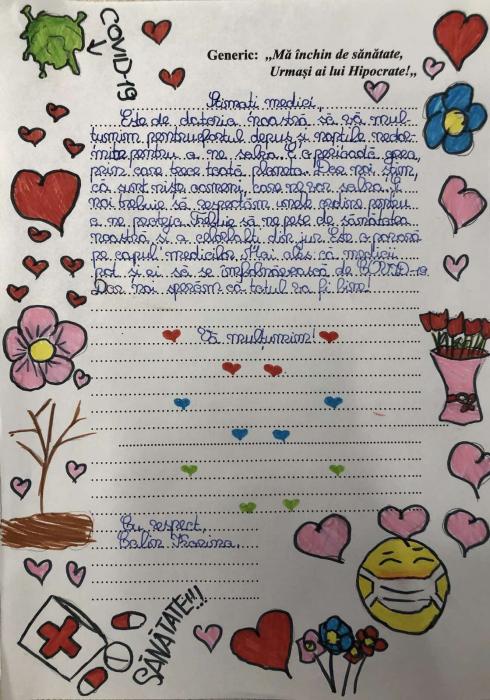 COVID-19
Generic: „Mă închin de sănătate,
Urmași ai lui Hipocrate!„
Stimați medici,
Este de datoria noastră să vă mul-
țumim pentru efortul depus și nopțile nedor-
mite pentru a ne salva. E o perioadă grea,
prin care trece toată planeta. Dar noi știm,
că sunt niște oameni, care ne vor salva. Și
noi trebuie să respectăm unele ordine pentru
a ne proteja. Trebuie să ne pese de sănătatea
noastră și a celorlalți din jur. Este o povară
pe capul medicilor. Mai ales că medicii
pot și ei să se îmbolnăvească de COVID-19
Dar noi sperăm că totul va fi bine!
Vă mulțumim!
Cu respect,
Calin
SĂNĂTATE!!!